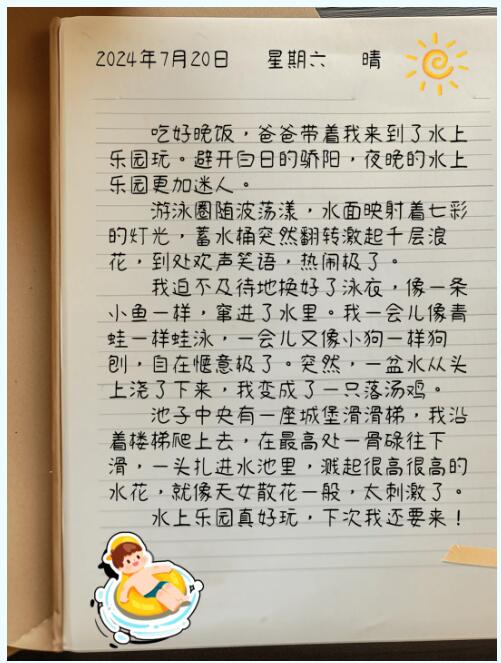 2024年7月20日 星期六 晴
吃好晚饭，爸爸带着我来到了水上
乐园玩。避开白日的骄阳，夜晚的水上
乐园更加迷人。
游泳圈随波荡漾，水面映射着七彩
的灯光，蓄水桶突然翻转激起千层浪
花，到处欢声笑语，热闹极了。
我迫不及待地换好了泳衣，像一条
小鱼一样，窜进了水里。我一会儿像青
蛙一样蛙泳，一会儿又像小狗一样狗
刨，自在惬意极了。突然，一盆水从头
上浇了下来，我变成了一只落汤鸡。
池子中央有一座城堡滑滑梯，我沿
着楼梯爬上去，在最高处一骨碌往下
滑，一头扎进水池里，溅起很高很高的
水花，就像天女散花一般，太刺激了。
水上乐园真好玩，下次我还要来！